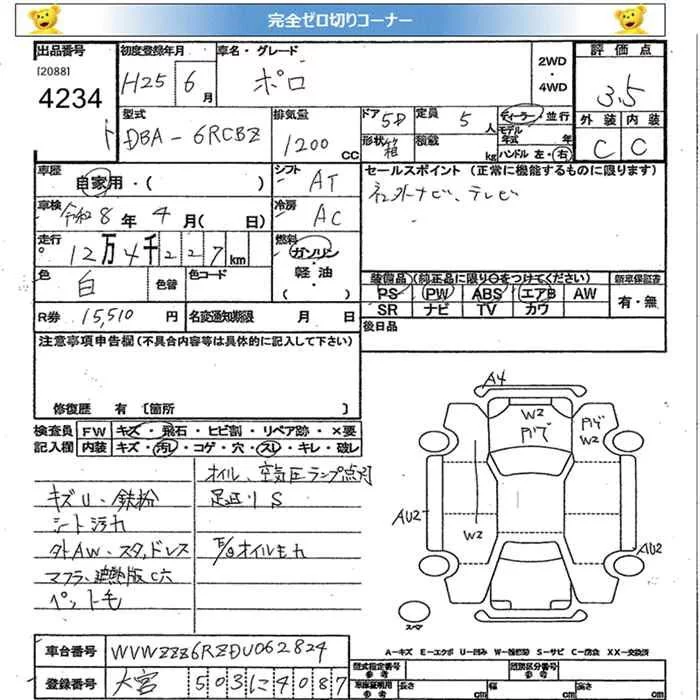 完全ゼロ切りコーナー
出品番号 初度登録年月 車名・グレード 評価点
[2088] 4234 H25 6月 ポロ 2WD・4WD 3.5
型式 排気量 ドア 5D 定員 5人 ディーラー・並行 外装 内装
DBA-6RCBZ 1200cc 形状 箱 積載 kg モデル年式 年 C C
ハンドル 左・右
車歴 自家用・( ) シフト AT セールスポイント (正常に機能するものに限ります)
車検 令和8年4月( 日) 冷房 AC 社外ナビ、テレビ
走行 12万4千227km 燃料 ガソリン
軽油
( )
色 白 色替 色コード 装備品 (純正品に限り○をつけてください) 新車保証書
PS PW ABS エアB AW 有・無
SR ナビ TV カワ
R券 15,510円 名変通知期限 月 日 後日品
注意事項申告欄(不具合内容等は具体的に記入して下さい)
修復歴 有 [箇所 ]
検査員 FW キズ・飛石・ヒビ割・リペア跡・×要
記入欄 内装 キズ・汚レ・コゲ・穴・スレ・キレ・破レ
オイル、空気圧ランプ点灯
キズU、鉄粉 足廻りS
シート汚れ
タトAW、スタッドレス E/Gオイルモレ
マフラ、遮熱版C穴
ペット毛
A4
W2
W2
AU2
W2
AU2
スペア
A-キズ E-エクボ U-凹み W-補修跡 S-サビ C-腐食 XX-交換済
車台番号 WVWZZZ6RZDU062824 型式指定番号 参考 類別区分番号 参考
登録番号 大宮 503に4087 車庫証明用 参考 長さ cm 幅 cm 高さ cm